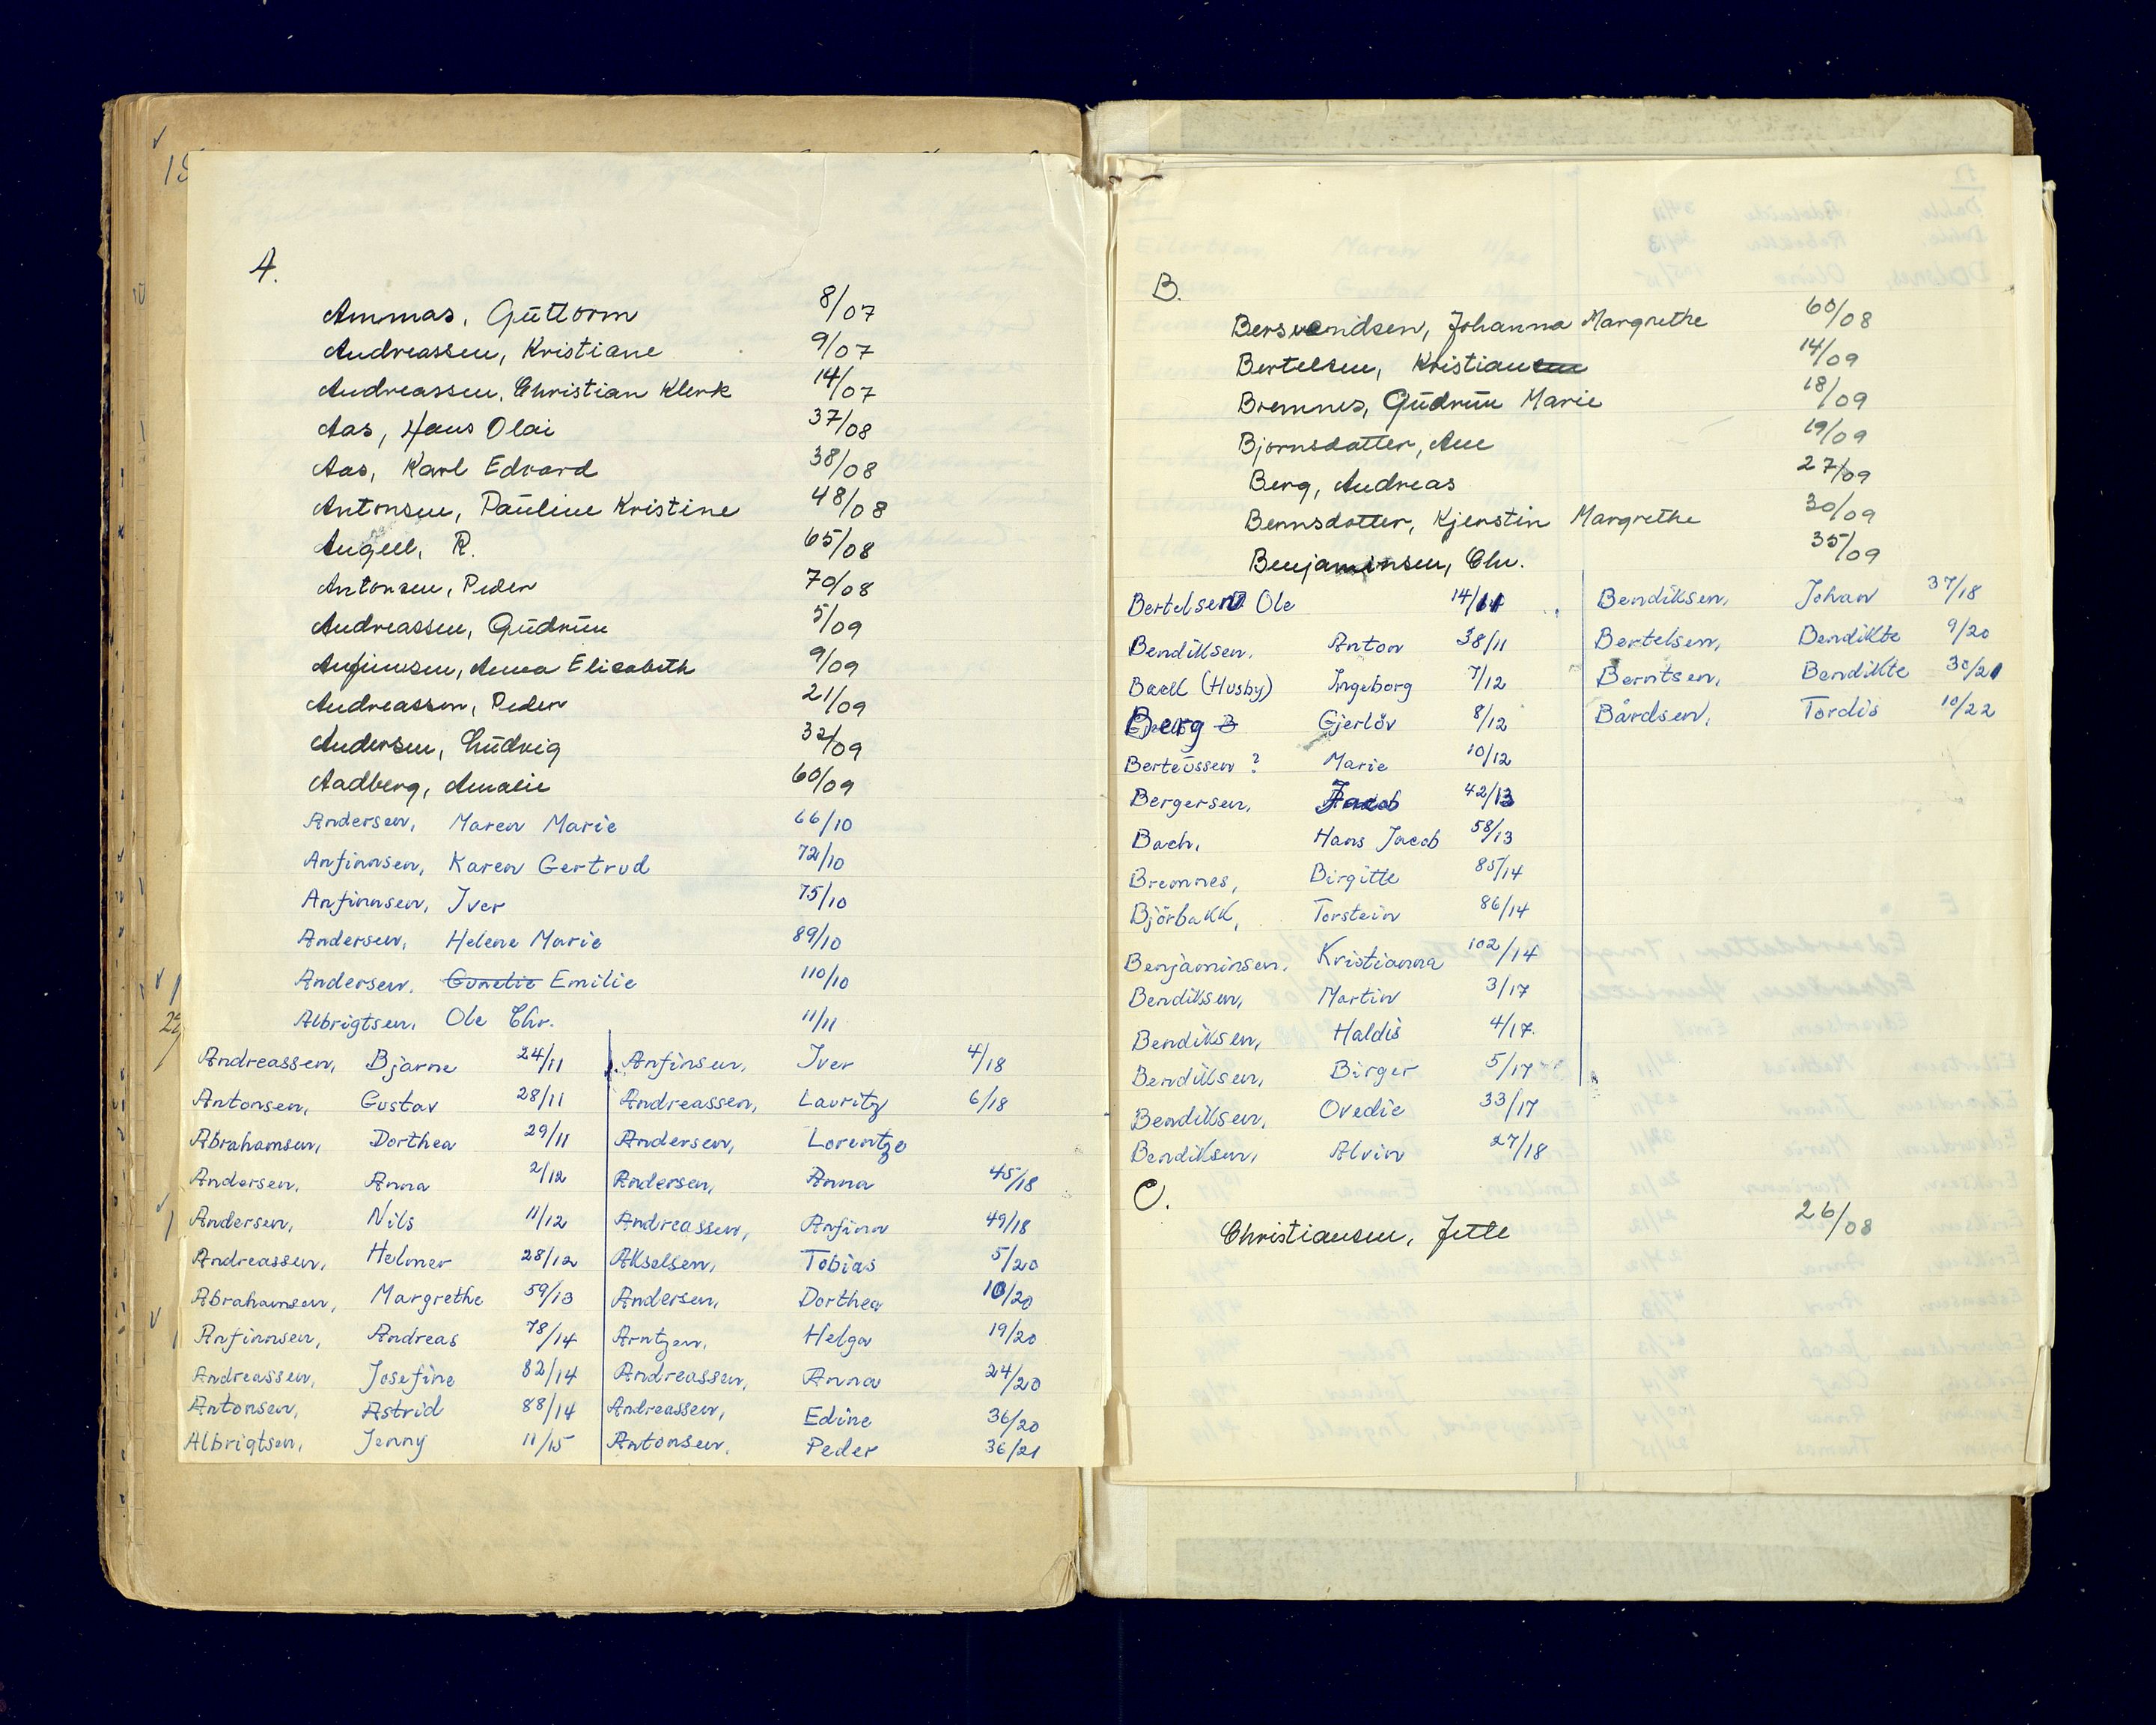 A.
Ammas, Guttorm 8/07
Andreassen, Kristiane 9/07
Andreassen, Christian Klerk 14/07
Aas, Hans Olai 37/08
Aas, Karl Edvard 38/08
Antonsen, Pauline Kristine 48/08
Angell, R. 65/08
Antonsen, Peder 70/08
Andreassen, Gudrun 5/09
Anfinnsen, Anna Elisabeth 9/09
Andreassen, Peder 21/09
Andersen, Ludvig 32/09
Aadberg, Amalie 60/09
Andersen, Maren Marie 66/10
Anfinnsen, Karen Gertrud 72/10
Anfinnsen, Iver 75/10
Andersen, Helene Marie 89/10
Andersen, Emilie 110/10
Albrigtsen, Ole Chr. 11/11
Andreassen, Bjarne 24/11
Antonsen, Gustav 28/11
Abrahamsen, Dorthea 29/11
Andersen, Anna 2/12
Andersen, Nils 11/12
Andreassen, Helmer 28/12
Abrahamsen, Margrethe 59/13
Anfinnsen, Andreas 78/14
Andreassen, Josefine 82/14
Antonsen, Astrid 88/14
Albrigtsen, Jenny 11/15
Anfinsen, Iver 4/18
Andreassen, Lauritz 6/18
Andersen, Lorentze
Andersen, Anna 45/18
Andreassen, Anfinn 49/18
Akselsen, Tobias 5/20
Andersen, Dorthea 10/20
Arntzen, Helga 19/20
Andreassen, Anna 24/20
Andreassen, Edine 36/20
Antonsen, Peder 36/21
B.
Bersvendsen, Johanna Margrethe 60/08
Bertelsen, Kristian 14/09
Bremnes, Gudrun Marie 18/09
Bjornsdatter, Ane 19/09
Berg, Andreas 27/09
Bernsdotter, Kjerstin Margrethe 30/09
Benjaminsen, Chr. 35/09
Bertelsen Ole 14/11
Bendiksen, Anton 38/11
Baell (Husby) Ingeborg 7/12
Berg B Gjerløv 8/12
Berteussen ? Marie 10/12
Bergersen, Jacob 42/13
Bach, Hans Jacob 58/13
Bremnes, Birgitte 85/14
Björbakk, Torstein 86/14
Benjaminsen, Kristianna 102/14
Bendiksen, Martin 3/17
Bendiksen, Haldis 4/17.
Bendiksen, Birger 5/17
Bendiksen, Ovedie 33/17
Bendiksen, Alvin 27/18
Bendiksen, Johan 37/18
Bertelsen, Bendikte 9/20
Berntsen, Bendikte 30/21
Bårdsen, Tordis 10/22
C.
Christiansen, Jette 26/08